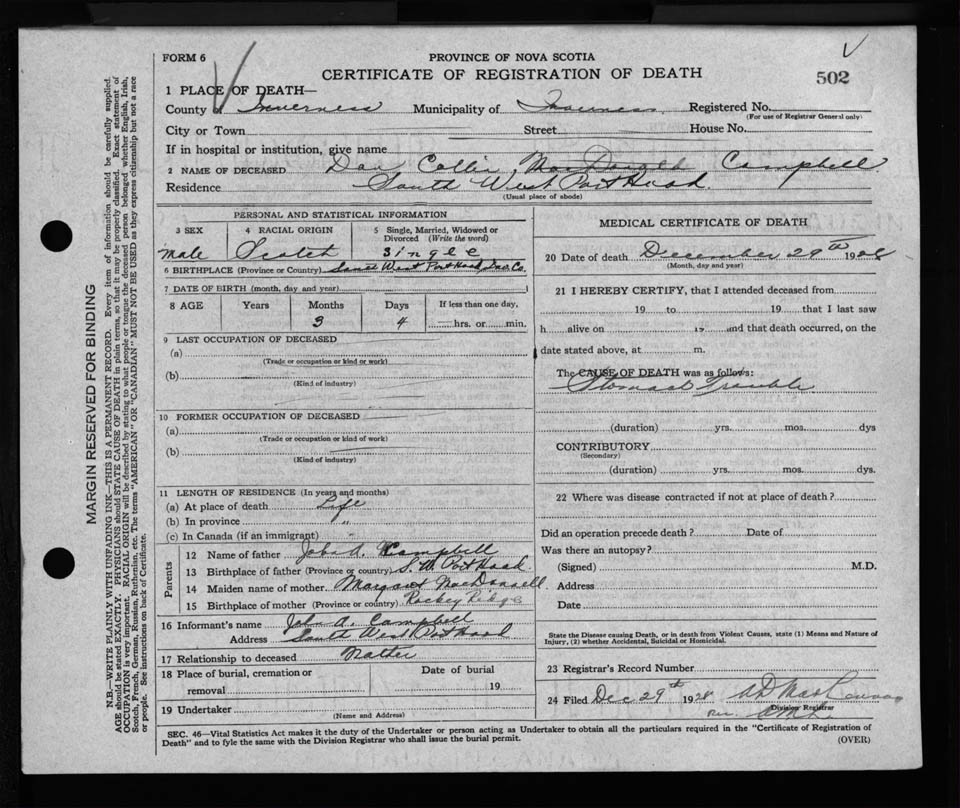 FORM 6
PROVINCE OF NOVA SCOTIA
CERTIFICATE OF REGISTRATION OF DEATH
502
1 PLACE OF DEATH—
County of Inverness Municipality of Inverness Registered No.
(For use of Registrar General only)
City or Town Street House No.
If in hospital or institution, give name
2 NAME OF DECEASED Dan Collin Campbell
Residence South West Port Hood.
(Usual place of abode)
PERSONAL AND STATISTICAL INFORMATION
3 SEX 4 RACIAL ORIGIN 5 Single, Married, Widowed or Divorced (Write the word)
male Scotch Single
6 BIRTHPLACE (Province or Country) South West Port Hood, Inv. Co.
7 DATE OF BIRTH (month, day and year)
8 AGE Years Months Days If less than one day,
3 4 hrs. or min.
9 LAST OCCUPATION OF DECEASED
(a)
(Trade or occupation or kind of work)
(b)
(Kind of industry)
10 FORMER OCCUPATION OF DECEASED
(a)
(Trade or occupation or kind of work)
(b)
(Kind of industry)
11 LENGTH OF RESIDENCE (In years and months)
(a) At place of death Life
(b) In province "
(c) In Canada (if an immigrant) "
Parents
12 Name of father John A. Campbell
13 Birthplace of father (Province or country) S. W. Port Hood.
14 Maiden name of mother Margaret MacDonnell
15 Birthplace of mother (Province or country) Rockey Ridge
16 Informant's name John A. Campbell
Address South West Port Hood
17 Relationship to deceased
18 Place of burial, cremation or removal Date of burial
19
19 Undertaker
(Name and Address)
MEDICAL CERTIFICATE OF DEATH
20 Date of death December 29th 1928
(Month, day and year)
21 I HEREBY CERTIFY, that I attended deceased from
19 to 19 that I last saw
h alive on 19 and that death occurred, on the
date stated above, at m.
The CAUSE OF DEATH was as follows:
Stomach Trouble
(duration) yrs. mos. dys
CONTRIBUTORY
(Secondary)
(duration) yrs. mos. dys.
22 Where was disease contracted if not at place of death?
Did an operation precede death? Date of
Was there an autopsy?
(Signed) M.D.
Address
Date
State the Disease causing Death, or in death from Violent Causes, state (1) Means and Nature of
Injury, (2) whether Accidental, Suicidal or Homicidal.
23 Registrar's Record Number
24 Filed Dec 29th 1928
Division Registrar
SEC. 46—Vital Statistics Act makes it the duty of the Undertaker or person acting as Undertaker to obtain all the particulars required in the "Certificate of Registration of
Death" and to fyle the same with the Division Registrar who shall issue the burial permit.
(OVER)
MARGIN RESERVED FOR BINDING
N.B.—WRITE PLAINLY WITH UNFADING INK—THIS IS A PERMANENT RECORD. Every item of information should be carefully supplied.
AGE should be stated EXACTLY. PHYSICIANS should STATE CAUSE OF DEATH in plain terms, so that it may be properly classified. Exact statement of
OCCUPATION is very important. RACIAL ORIGIN will be described by stating to what people or tongue the deceased person belonged whether English, Irish,
Scotch, French, German, Russian, Ruthenian, etc. The terms "AMERICAN" OR "CANADIAN" MUST NOT BE USED as they express citizenship but not a race
or people. See instructions on back of Certificate.